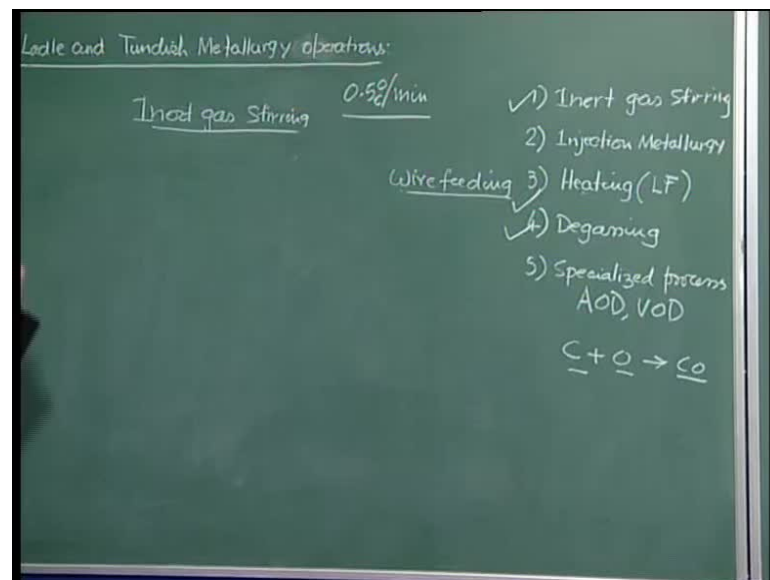 Ladle and Tundish Metallurgy operations:
Inert gas Stirring
0.5°C/min
1) Inert gas Stirring
2) Injection Metallurgy
Wire feeding 3) Heating (LF)
4) Degassing
5) Specialized process
AOD, VOD
C + O → CO